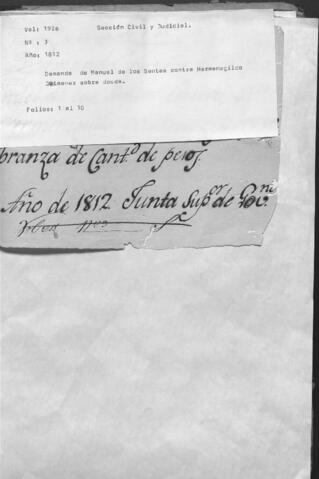 Vol: 1926 Sección Civil y Judicial.
Nº : 3
Año: 1812
Demanda de Manuel de los Santos contra Hermenegildo
Jimenez sobre deuda.
Folios: 1 al 10
branza de Cant.º de pesos
Año de 1812. Junta Sup.r de Gov.no